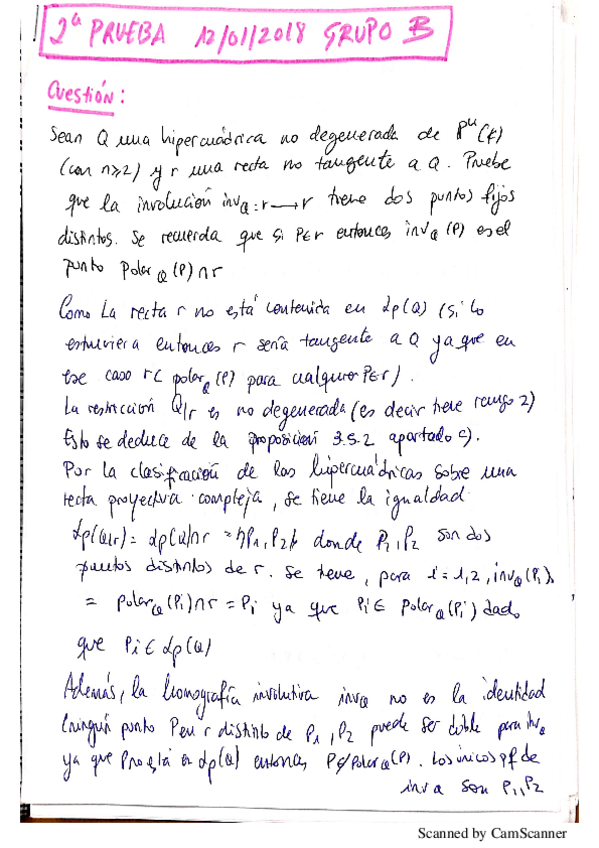 2ª PRUEBA 12/01/2018 GRUPO B
Cuestión:
Sean Q una hipercuádrica no degenerada de Pⁿ(k)
(con n≥2) y r una recta no tangente a Q. Pruebe
que la involución inv_Q: r → r tiene dos puntos fijos
distintos. Se recuerda que si P∈r entonces inv_Q(P) es el
punto Polar_Q(P)∩r
Como La recta r no está contenida en Lp(Q) (si lo
estuviera entonces r sería tangente a Q ya que en
ese caso r⊂ polar_Q(P) para cualquier P∈r).
La restricción Q|r es no degenerada (es decir tiene rango 2)
Esto se deduce de la proposición 3.5.2 apartado c).
Por la clasificación de las hipercuádricas sobre una
recta proyectiva compleja, se tiene la igualdad
Lp(Q|r) = Lp(Q)∩r = {P₁,P₂} donde P₁,P₂ son dos
puntos distintos de r. Se tiene, para i=1,2, inv_Q(Pi)
= polar_Q(Pi)∩r = Pi ya que Pi∈ Polar_Q(Pi) dado
que Pi∈Lp(Q)
Además, la homografía involutiva inv_Q no es la identidad
(ningún punto P en r distinto de P₁,P₂ puede ser doble para inv_Q
ya que P no está en Lp(Q) entonces P∉Polar_Q(P). Los únicos pf de
inv_Q son P₁,P₂
Scanned by CamScanner